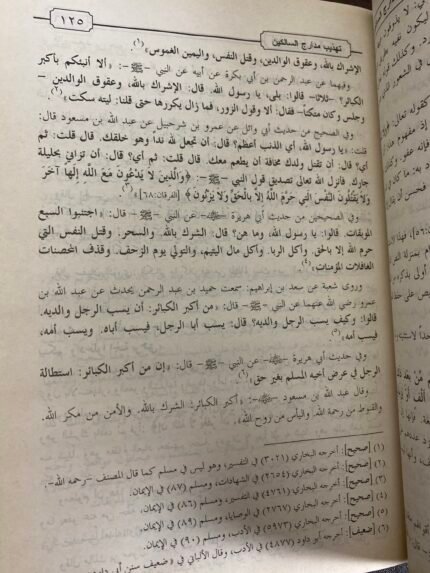 تهذيب مدارج السالكين
١٢٥
الإشراك بالله، وعقوق الوالدين، وقتل النفس، واليمين الغموس»(١).
وفيهما عن عبد الرحمن بن أبي بكرة عن أبيه عن النبي -ﷺ-: «ألا أنبئكم بأكبر
الكبائر؟ -ثلاثا- قالوا: بلى، يا رسول الله. قال: الإشراك بالله، وعقوق الوالدين -
وجلس وكان متكئاً- فقال: ألا وقول الزور، فما زال يكررها حتى قلنا: ليته سكت»(٢).
وفي الصحيح من حديث أبي وائل عن عمرو بن شرحبيل عن عبد الله بن مسعود قال:
قلت: «يا رسول الله، أي الذنب أعظم؟ قال: أن تجعل لله ندا وهو خلقك. قال قلت: ثم
أي؟ قال: أن تقتل ولدك مخافة أن يطعم معك. قال قلت: ثم أي؟ قال: أن تزاني بحليلة
جارك. فأنزل الله تعالى تصديق قول النبي -ﷺ-: ﴿وَالَّذِينَ لَا يَدْعُونَ مَعَ اللَّهِ إِلَهًا آخَرَ
وَلَا يَقْتُلُونَ النَّفْسَ الَّتِي حَرَّمَ اللَّهُ إِلَّا بِالْحَقِّ وَلَا يَزْنُونَ﴾ [الفرقان:٦٨]»(٣).
وفي الصحيحين من حديث أبي هريرة -﵁- عن النبي -ﷺ- قال: «اجتنبوا السبع
الموبقات. قالوا: يا رسول الله، وما هن؟ قال: الشرك بالله. والسحر. وقتل النفس التي
حرم الله إلا بالحق. وأكل الربا. وأكل مال اليتيم، والتولي يوم الزحف. وقذف المحصنات
الغافلات المؤمنات»(٤).
وروى شعبة عن سعد بن إبراهيم: سمعت حميد بن عبد الرحمن يحدث عن عبد الله بن
عمرو رضي الله عنهما عن النبي -ﷺ- قال: «من أكبر الكبائر: أن يسب الرجل والديه.
قالوا: وكيف يسب الرجل والديه؟ قال: يسب أبا الرجل، فيسب أباه. ويسب أمه،
فيسب أمه»(٥).
وفي حديث أبي هريرة -﵁- عن النبي -ﷺ- قال: «إن من أكبر الكبائر: استطالة
الرجل في عرض أخيه المسلم بغير حق»(٦).
وقال عبد الله بن مسعود -﵁-: «أكبر الكبائر: الشرك بالله. والأمن من مكر الله.
والقنوط من رحمة الله. واليأس من روح الله».
(١) [صحيح]: أخرجه البخاري (٣٠٢١) في التفسير، وهو ليس في مسلم كما قال المصنف -رحمه الله-.
(٢) [صحيح]: أخرجه البخاري (٢٦٥٤) في الشهادات، ومسلم (٨٧) في الإيمان.
(٣) [صحيح]: أخرجه البخاري (٤٧٦١) في التفسير، ومسلم (٨٦) في الإيمان.
(٤) [صحيح]: أخرجه البخاري (٢٧٦٧) في الوصايا، ومسلم (٨٩) في الإيمان.
(٥) [صحيح]: أخرجه البخاري (٥٩٧٣) في الأدب، ومسلم (٩٠) في الإيمان.
(٦) [ضعيف]: أخرجه أبو داود (٤٨٧٧) في الأدب، وقال الألباني في «ضعيف سنن أبي